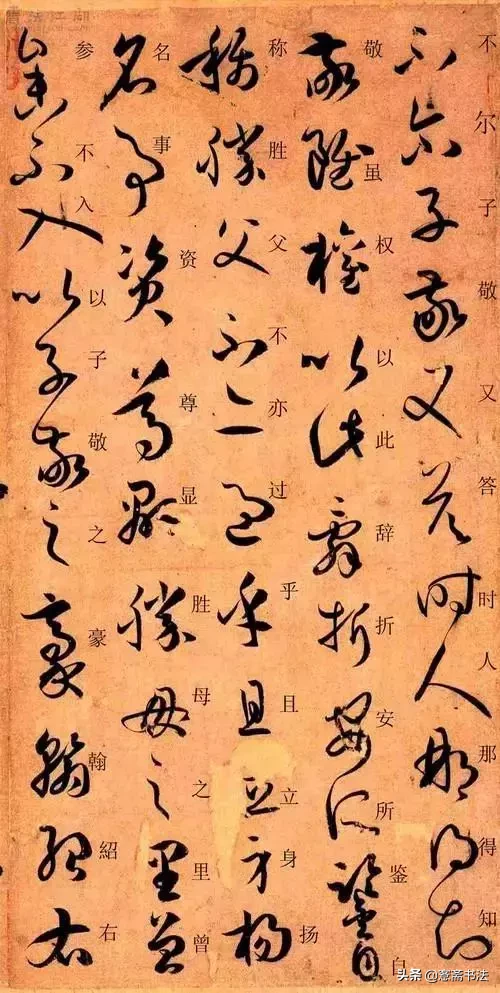 不尔子敬又答时人那得知
敬虽权以此辞折安所鉴自
称胜父不亦过乎且立身扬
名事资尊显胜母之里曾
参不入以子敬之豪翰紹右
头条